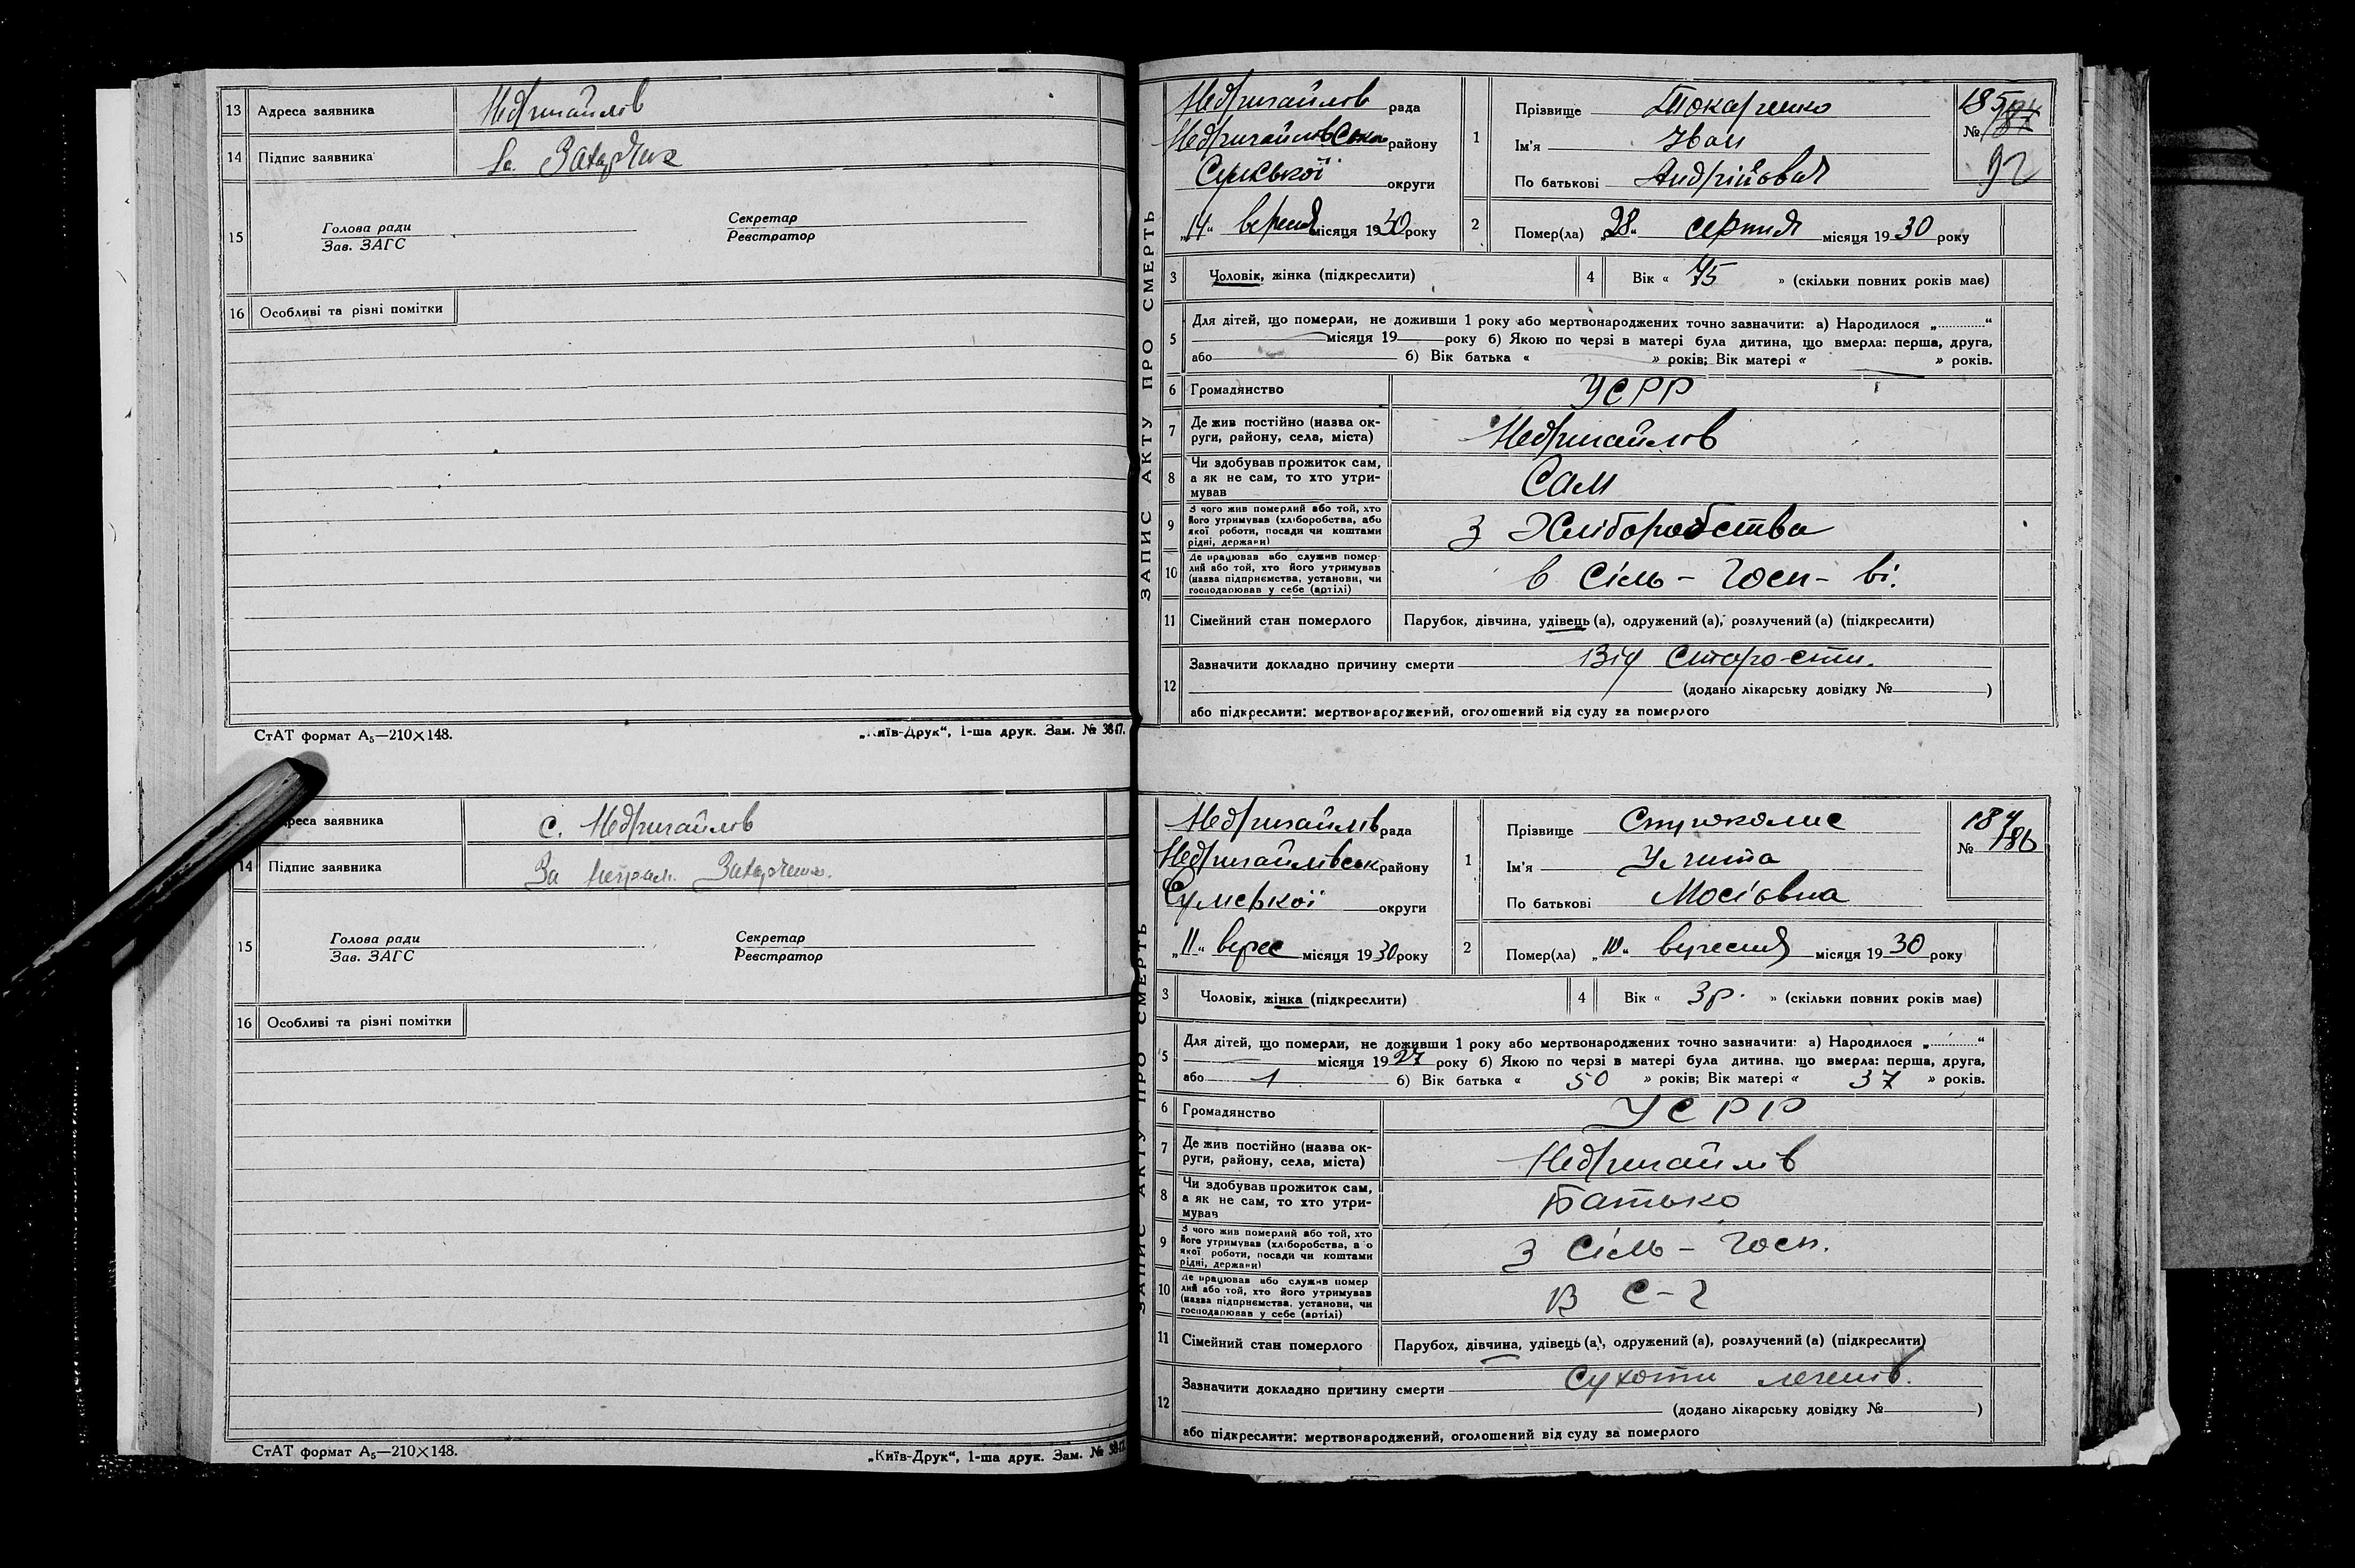 13 Адреса заявника Недригайлів
14 Підпис заявника За Захарченк
15 Голова ради
Зав. ЗАГС
Секретар
Реєстратор
16 Особливі та різні помітки
СтАТ формат А₅—210×148.
„Київ-Друк“, 1-ша друк. Зам. № 3817.
адреса заявника с. Недригайлів
14 Підпис заявника За Захарченко
15 Голова ради
Зав. ЗАГС
Секретар
Реєстратор
16 Особливі та різні помітки
СтАТ формат А₅—210×148.
„Київ-Друк“, 1-ша друк. Зам. №
ЗАПИС АКТУ ПРО СМЕРТЬ
Недригайлів рада
Недригайлівськ району
Сумської округи
„14“ вересня місяця 1930 року
1 Прізвище Токаренко
Ім'я Іван
По батькові Андрійович
185
№ 187
92
2 Помер(ла) „28“ серпня місяця 1930 року
3 Чоловік, жінка (підкреслити)
4 Вік « 75 » (скільки повних років має)
5 Для дітей, що померли, не доживши 1 року або мертвонароджених точно зазначити: а) Народилося „............“
місяця 19 року б) Якою по черзі в матері була дитина, що вмерла: перша, друга,
або б) Вік батька « » років; Вік матері « » років.
6 Громадянство УСРР
7 Де жив постійно (назва ок-
руги, району, села, міста) Недригайлів
8 Чи здобував прожиток сам,
а як не сам, то хто утри-
мував Сам
9 З чого жив померлий або той, хто
його утримував (хліборобства, або
якої роботи, посади чи коштами
рідні, держави) З Хліборобства
10 Де працював або служив помер-
лий або той, хто його утримував
(назва підприємства, установи, чи
господарював у себе (артілі) в Сіль - Госп - ві.
11 Сімейний стан померлого Парубок, дівчина, удівець (а), одружений (а), розлучений (а) (підкреслити)
12 Зазначити докладно причину смерти Від Старости.
(додано лікарську довідку № )
або підкреслити: мертвонароджений, оголошений від суду за померлого
ЗАПИС АКТУ ПРО СМЕРТЬ
Недригайлів рада
Недригайлівськ району
Сумської округи
„11“ верес місяця 1930 року
1 Прізвище
Ім'я Улита
По батькові Мосіовна
184
№ 186
2 Помер(ла) „10“ вересня місяця 1930 року
3 Чоловік, жінка (підкреслити)
4 Вік « 3р. » (скільки повних років має)
5 Для дітей, що померли, не доживши 1 року або мертвонароджених точно зазначити: а) Народилося „............“
місяця 1927 року б) Якою по черзі в матері була дитина, що вмерла: перша, друга,
або 1 б) Вік батька « 50 » років; Вік матері « 37 » років.
6 Громадянство УСРР
7 Де жив постійно (назва ок-
руги, району, села, міста) Недригайлів
8 Чи здобував прожиток сам,
а як не сам, то хто утри-
мував Батько
9 З чого жив померлий або той, хто
його утримував (хліборобства, або
якої роботи, посади чи коштами
рідні, держави) З Сіль - Госп.
10 Де працював або служив помер
лий або той, хто його утримував
(назва підприємства, установи, чи
господарював у себе (артілі) В С-г
11 Сімейний стан померлого Парубок, дівчина, удівець (а), одружений (а), розлучений (а) (підкреслити)
12 Зазначити докладно причину смерти Сухоти легенів.
(додано лікарську довідку № )
або підкреслити: мертвонароджений, оголошений від суду за померлого